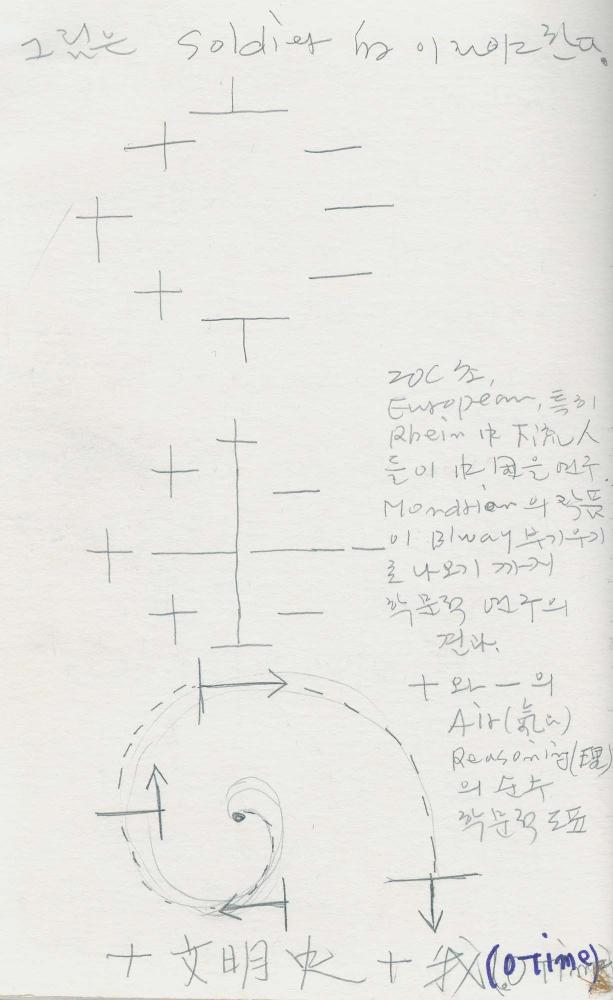 그림은 Soldier 가 이지아그한다.
20C 초,
European, 특히
Rhein 中 下流人
들이 中國을 연구.
Mondrian의 작품
이 B/way 부기우기
로 나오기 까지
학문적 연구의
결과.
+ 와 - 의
Air(氣)
Reasoning(理)
의 순수
학문적 도표
+ 文明 史 + 我 (0 Time)